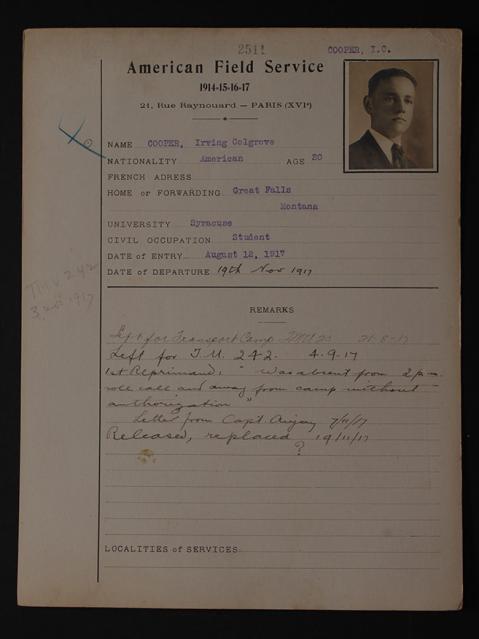 2511
COOPER, I.C.
American Field Service
1914-15-16-17
21, Rue Raynouard — PARIS (XVIe)
NAME COOPER, Irving Colgrove
NATIONALITY American AGE 20
FRENCH ADRESS
HOME or FORWARDING Great Falls
Montana
UNIVERSITY Syracuse
CIVIL OCCUPATION Student
DATE of ENTRY August 12, 1917
DATE of DEPARTURE 19th Nov 1917
TMU 242
3 1917
REMARKS
Left for Transport Camp 21-8-17
Left for T.U. 242. 4.9.17
1st Reprimand, " Was absent from 2 p.m.
roll call and away from camp without
authorization "
Letter from Capt 7/11/17
Released, replaced 19/11/17
?
LOCALITIES of SERVICES